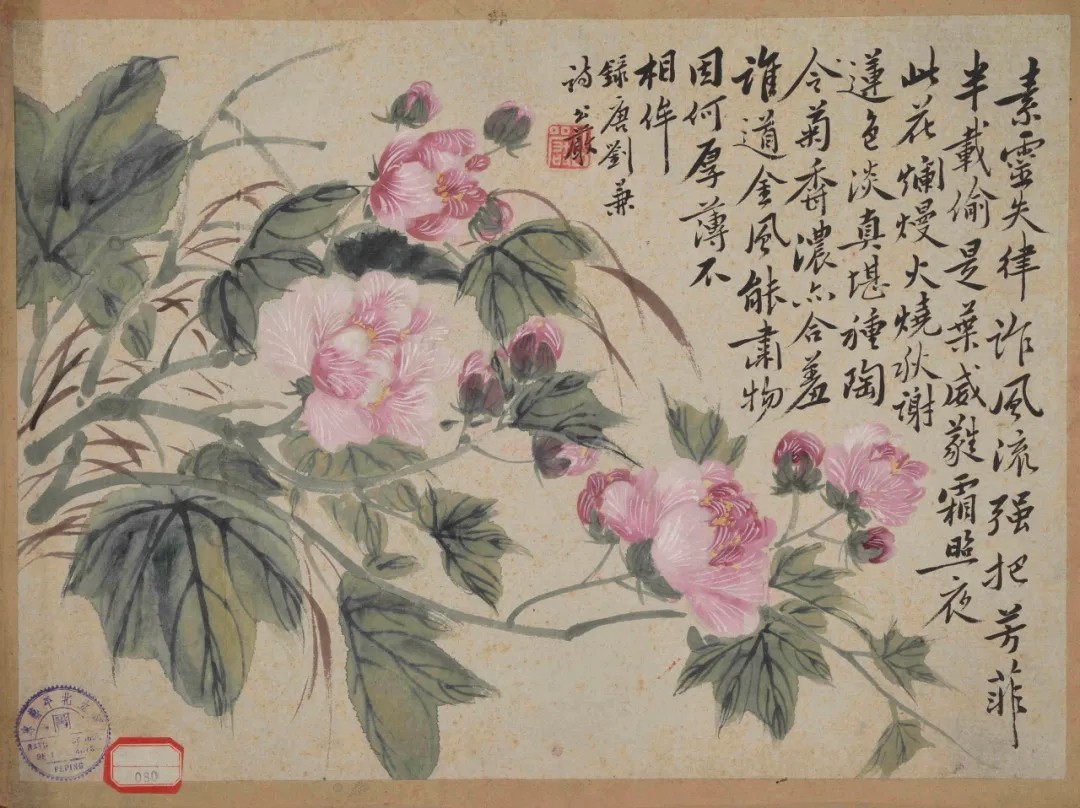 素靈失律詐風流强把芳菲
半載偷是葉威蕤霜照夜
此花爛熳火燒秋謝
蓮色淡真堪種陶
令菊香濃亦合羞
誰道金風能肅物
因何厚薄不
相侔
録唐劉兼
詩公嚴
PEPING
080